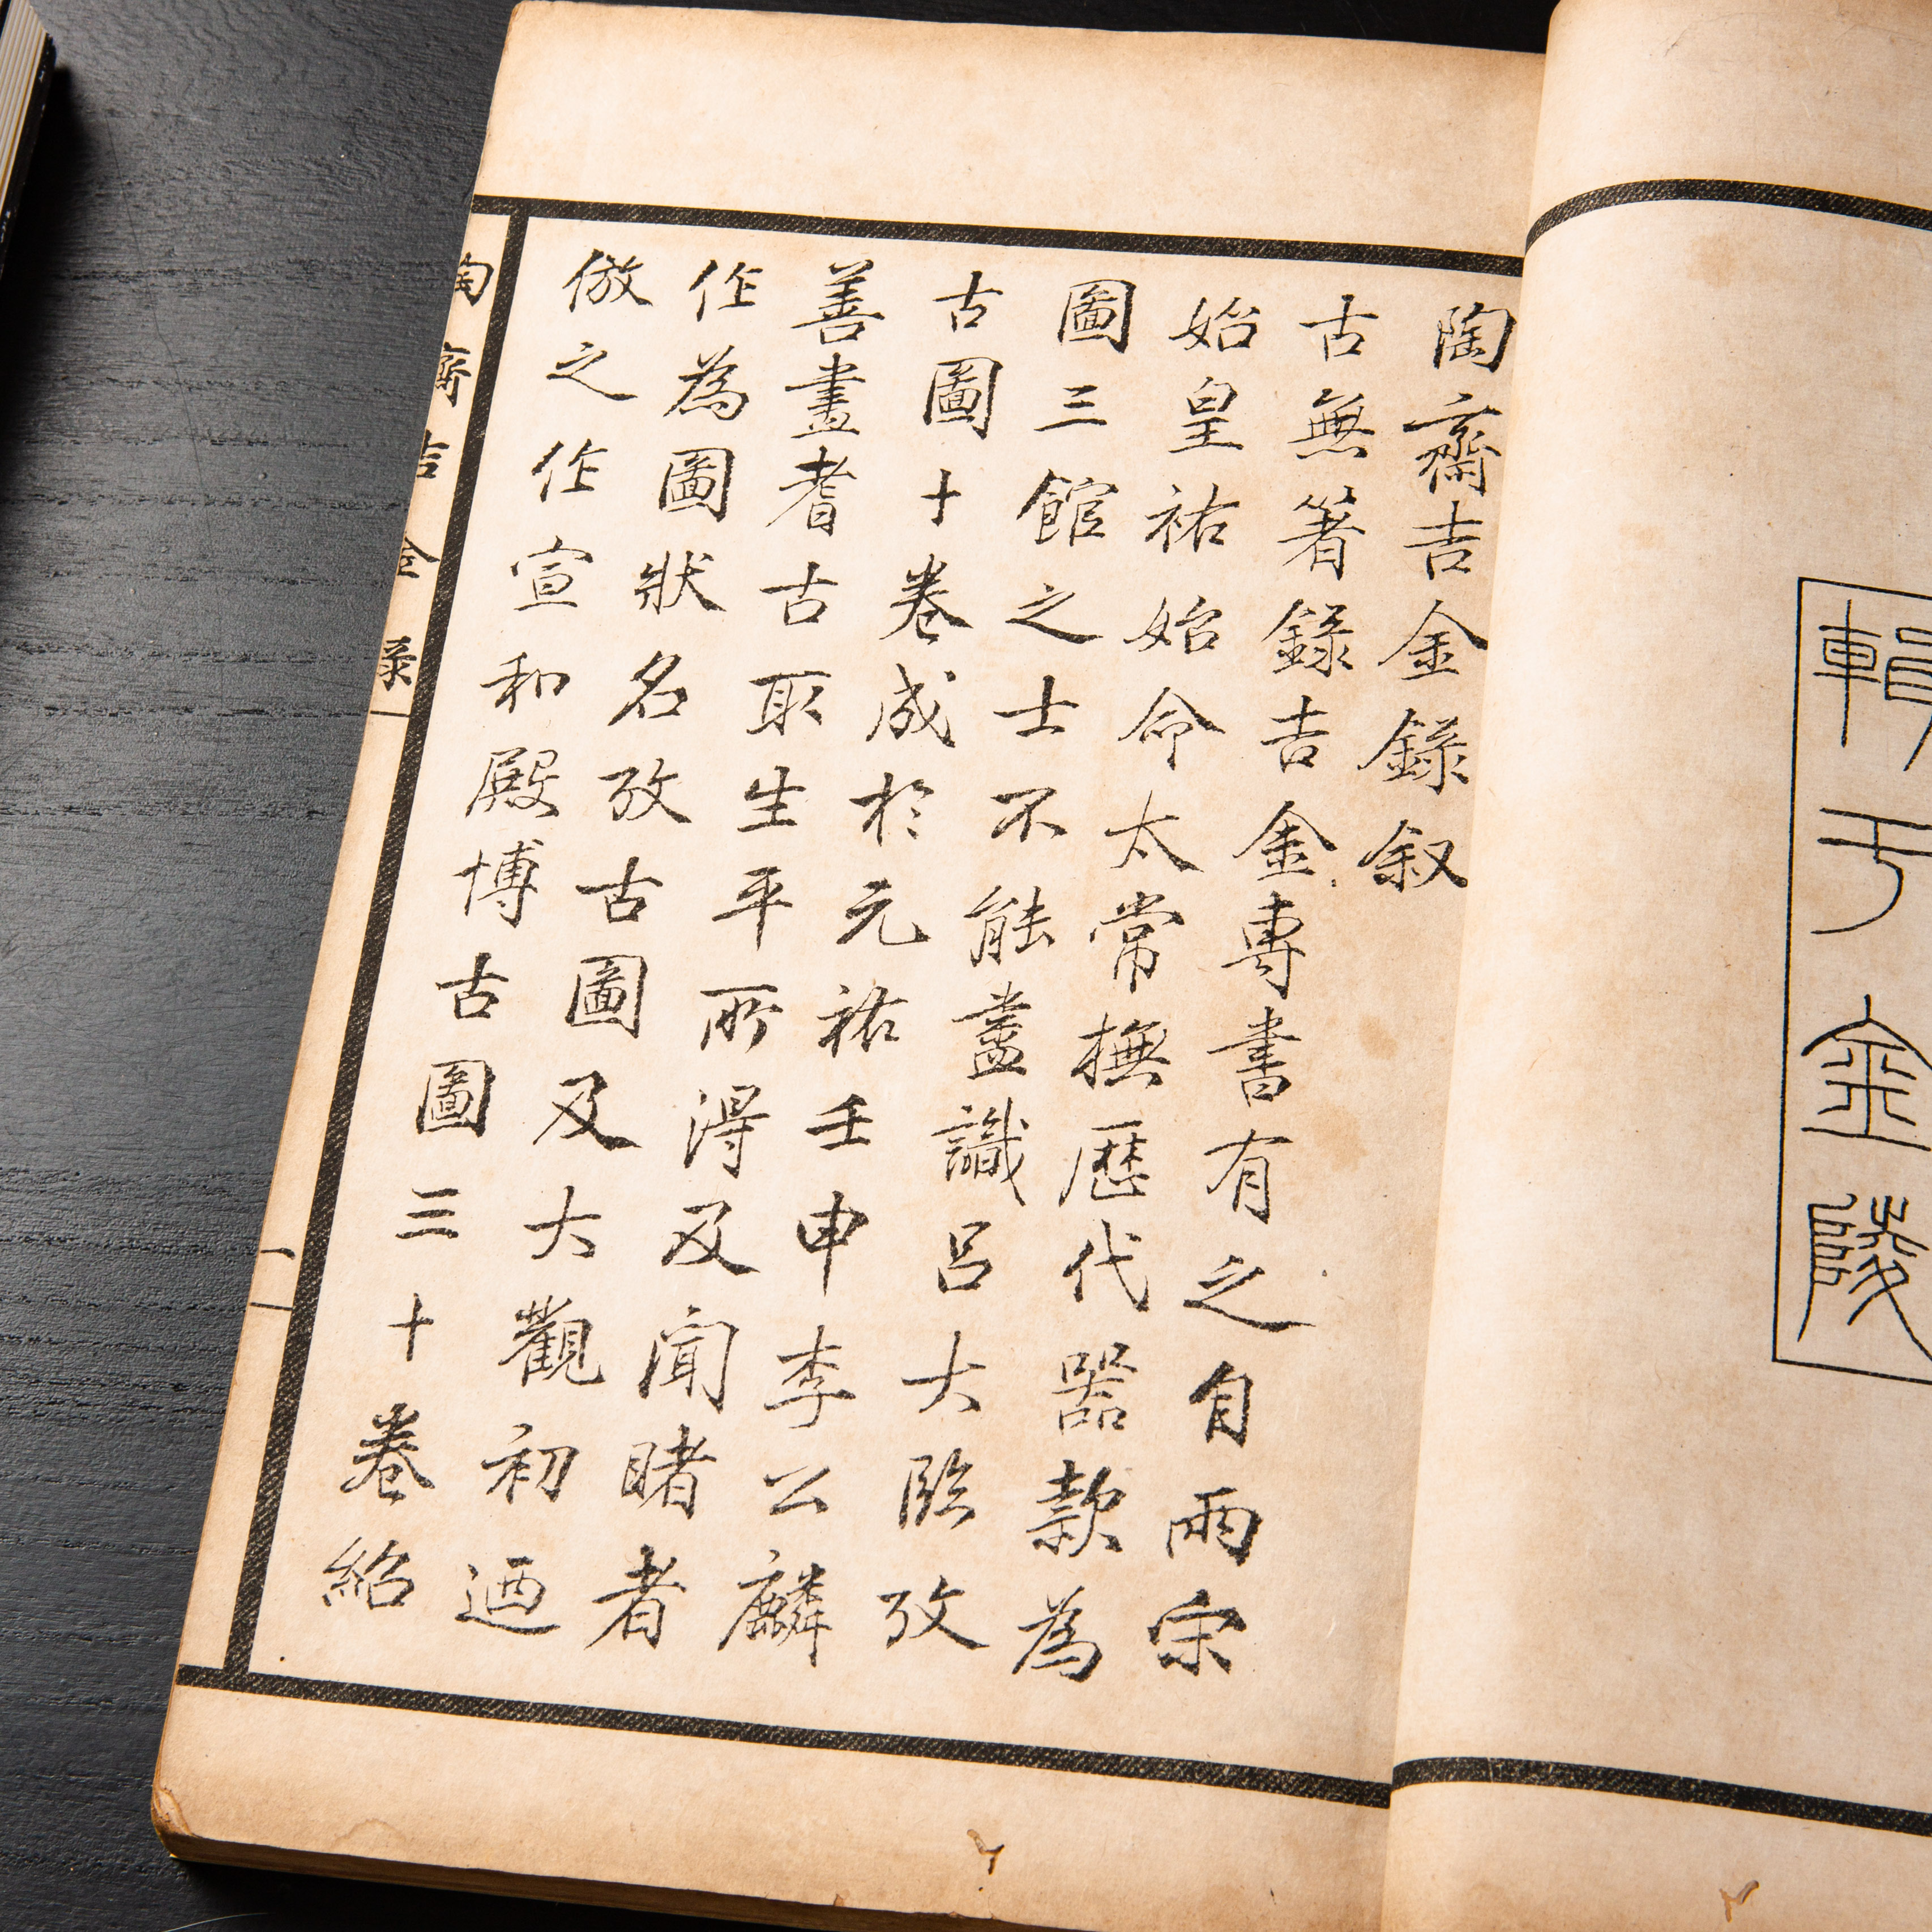 輯于金陵
陶齋吉金錄叙
古無著錄吉金專書有之自兩宋
始皇祐始命太常撫歷代器款為
圖三館之士不能盡識呂大臨攷
古圖十卷成於元祐壬申李公麟
善畫耆古取生平所得及聞睹者
作為圖狀名攷古圖及大觀初迺
倣之作宣和殿博古圖三十卷紹
陶齋吉金录一
一